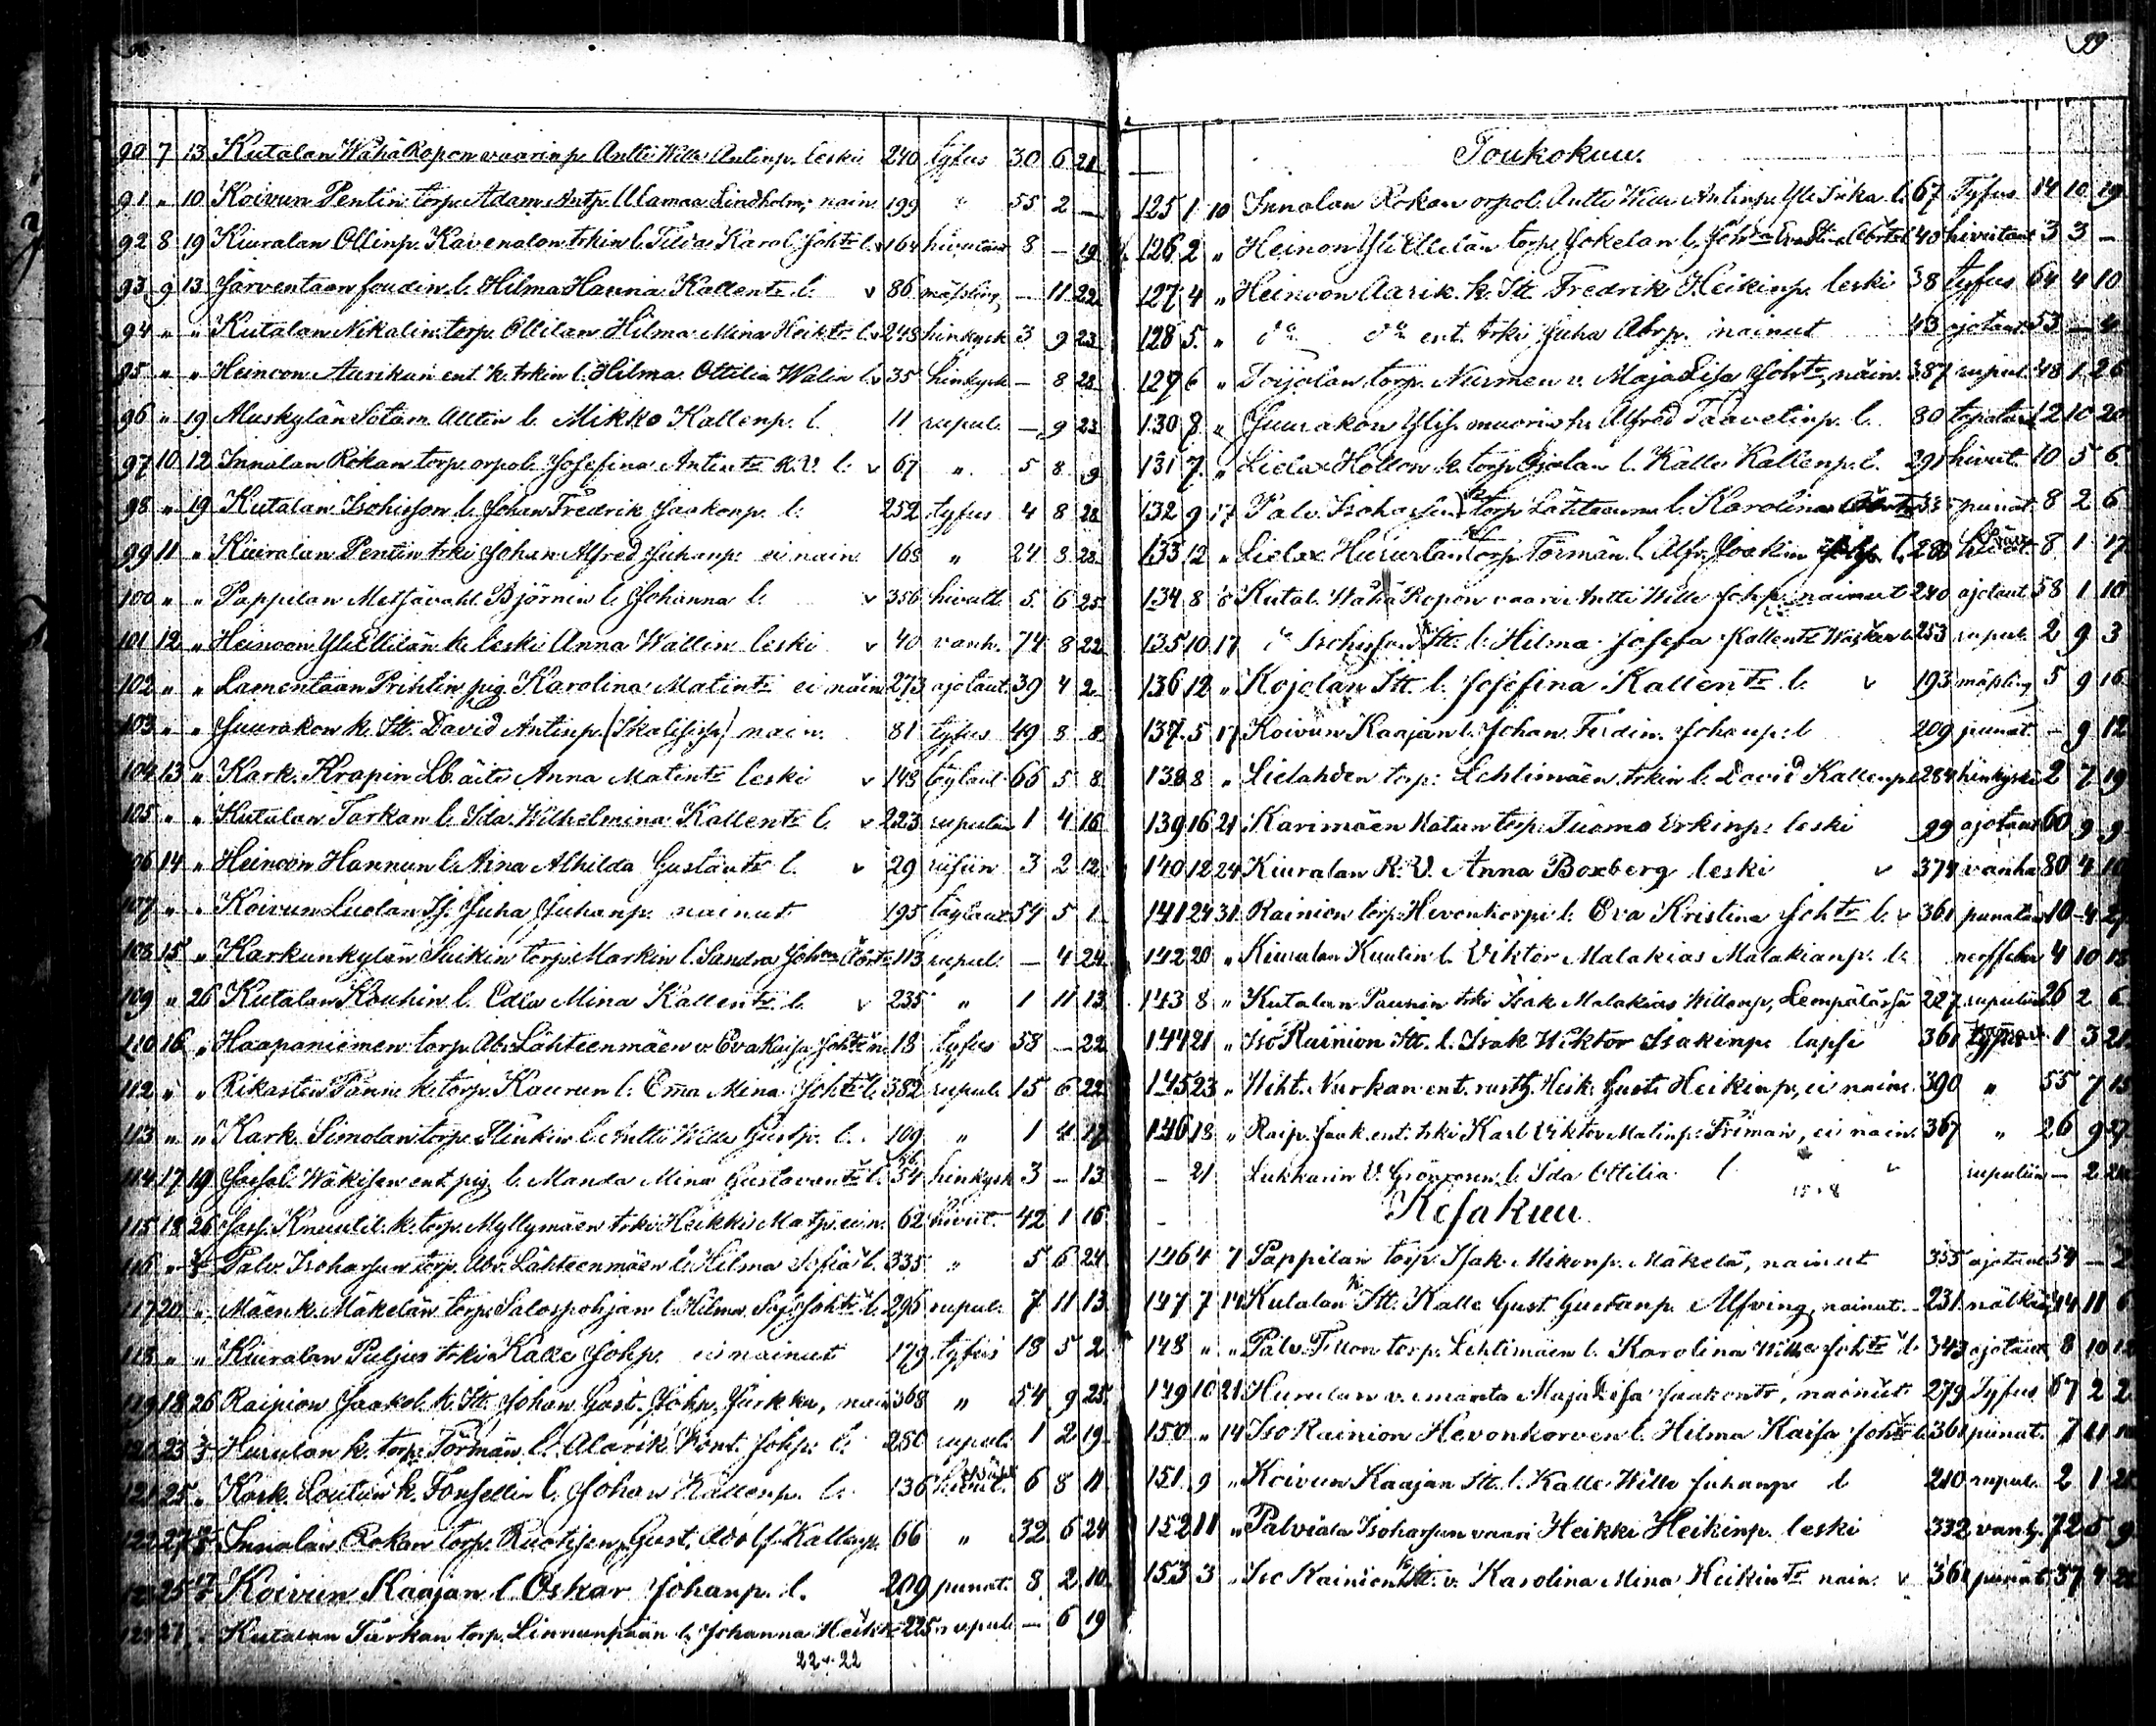 90 7 13 Kutalan WähäRopon vaarinp. Antti Wille Antinp. leski 240 tyfus 30 6 21
91 " 10 Koivun Pentin torp. Adam Antp. Ulamaa Lindholm, nain. 199 " 55 2 —
92 8 19 Kiuralan Ollinp. Kavenalan trkin l. Karol. Joh:tr l. v 164 8 — 19
93 9 13 Järventaan l. Hilma Hanna Kallentr l. v 86 mässling — 11 22
94 " " Kutalan Nikalin torp. Ollilan Hilma Mina Heiktr l. v 248 hinkysk 3 9 23
95 " " Heinoon Aurikan ent. k. trkin l. Hilma Ottilia Walin l. v 35 hinkysk — 8 28
96 " 19 Muskylän Sotam. l. Mikko Kallenp. l. 11 rupul. — 9 23
97 10 12 Innalan Rokan torp. orpol. Josefina Antintr K.V. l. v 67 " 5 8 9
98 " 19 Kutalan Isohisson l. Johan Fredrik Jaakonp. l. 252 tyfus 4 8 28
99 11 " Kiuralan Pentin trki Johan Alfred Juhanp. ei nain. 168 " 24 8 28
100 " " Pappilan Metsävaht. Björnin l. Johanna l. v 356 hivutt. 5 6 25
101 12 " Heinoon YliEllilän k. leski Anna Wallin leski v 40 vanh. 74 8 22
102 " " Lamentaan Prihtin pig. Karolina Matintr ei nain 273 ajotaut. 39 4 2
103 " " Juurakon k. Itt. David Antinp. nain. 81 tyfus 49 8 8
104 13 " Kark. Krapin Lb. äiti Anna Matintr leski v 148 66 5 8
105 " " Kutalan Tarkan l. Ida Wilhelmina Kallentr l. v 223 rupulin 1 4 16
106 14 " Heinoon Hannun l. Aina Alhilda Gustavtr l. v 29 3 2 12
107 " " Koivun Luolan Is. Juha Juhanp. nainut 195 54 5 1
108 15 " Karkunkylän Suikin torp. Markin l. Sandra Johan 113 rupul. — 4 24
109 " 26 Kutalan Kouhin l. Edla Mina Kallentr l. v 235 " 1 11 13
110 16 " Haapaniemen torp. Ab. Lähteenmäen v. Eva Kaisa Johtr 18 tyfus 58 — 22
112 " " Rikasten Pännin k. torp. Kaurun l. Ema Mina Johtr l. 382 rupul. 15 6 22
113 " " Kark. Simolan torp. l. Antti Wille Gustp. l. 109 " 1 4 17
114 17 19 Wäkisen ent. pig. l. Manda Mina Gustaventr l. 54 hinkysk 3 — 13
115 18 26 Knuutil. k. torp. Myllymäen trki Heikki Matp. ei n. 62 hivut. 42 1 16
116 " Palv. Isoharsun torp. Ab. Lähteenmäen l. Hilma Sofia l. 335 " 5 6 24
117 20 " Mäen k. Mäkelän torp. Salospohjan l. Hilma Sof. Johtr l. 296 rupul. 7 11 13
118 " " Kiuralan Puljus trki Kalle Johp. ei nainut 179 tyfus 18 5 2
119 18 26 Raipion Jaakol. k. Itt. Johan Gust. Johp. Jurkka, nain 368 " 54 9 25
120 23 Hurulan k. torp. Törmän l. Alarik Kont. Johp. l. 280 rupul. 1 2 19
121 25 " Kark. Loutun k. l. Johan Kallenp. l. 136 6 8 11
122 27 Innalan Rokan torp. Ruotisen Gust. Adolf Kallenp. 66 " 32 6 24
25 Koivun Kaajan l. Oskar Johanp. l. 209 punat. 8 2 10
27 Kutalan Turkan torp. Linnunpään l. Johanna Heikk. 225 rupul. — 6 19
22+22
99
Toukokuu.
125 1 10 Innalan Rokan orpol. Antti Wille Antinp. l. 67 Tyfus 14 10 19
126 2 " Heinon YliEllilän torp. Jokelan l. 40 hivutaut 3 3 —
127 4 " Heinoon Aarik. k. Itt. Fredrik Heikinp. leski 38 tyfus 64 4 10
128 5 " do do ent. trki Juha Abrp. nainut 43 ajotaut 53 — 4
129 6 " Toijolan torp. Nurmen v. Maja Lisa Johtr, näin. 387 rupul. 48 1 26
130 8 " Juurakon Ylis. muorin tr. Alfred Taavetinp. l. 80 12 10 20
131 7 " Lielax Hollon k. torp. l. Kalle Kallenp. l. 291 hivut. 10 5 6
132 9 17 Palv. Isoharsun k. torp. l. Karolina 335 punat. 8 2 6
133 12 " Lielax Hurulan k. torp. Törmän l. Alfr. Joakim l. 280 8 1 17
134 8 Kutal. Wähä Ropon vaari Antti Wille Johp. nainut 240 ajotaut 58 1 10
135 10 17 do Isohisson k. Itt. l. Hilma Josefa Kallentr l. 253 rupul. 2 9 3
136 12 " Kojolan Itt. l. Josefina Kallentr l. v 193 mässling 5 9 16
137 5 17 Koivun Kaajan l. Johan Ferdin. Johanp. l 209 punat. — 9 12
138 8 " Lielahden torp. Lehtimäen trkin l. David Kallenp. 284 hinkysk 2 7 19
139 16 21 Karimäen torp. Tuomo Erkinp. leski 99 ajotaut 60 9 9
140 12 24 Kiuralan R.V. Anna Boxberg leski v 374 vanha 80 4 10
141 24 31 Rainion torp. Hevonkorpi l. Eva Kristina Johtr l. v 361 punataut 10 4 27
142 20 " Kiuralan Kuutin l. Viktor Malakias Malakianp. l. 4 10 18
143 8 " Kutalan Paunin trki Isak Malakias Willenp., Lempälässä 227 rupulin 26 2 6
144 21 " Iso Rainion Itt. l. Isak Wiktor Isakinp. lapsi 361 1 3 21
145 23 " Wiht. Nurkan ent. rusth. Heik. Gust. Heikinp., ei nain. 390 " 55 7 15
146 18 " Raip. Jaak. ent. trki Karl Viktor Matinp. Friman, ei nain. 367 " 26 9 27
— 21 Lukkarin V. Grönroosin l. Ida Ottilia l v rupulin — 2 24
15+8
Kesäkuu
146 4 7 Pappilan torp. Isak Mikonp. Mäkelä, nainut 355 ajotaut 54 — 2
147 7 14 Kutalan k. Itt. Kalle Gust. Gustanp. Alfving, nainut. 231 44 11 6
148 " " Palv. Tillon torp. Lehtimäen l. Karolina Wilh. Johtr l. 343 ajotaut 8 10 12
149 10 21 Hurulan v. emäntä Maja Lisa Jaakontr, nainut 279 Tyfus 67 2 2
150 " 14 Iso Rainion Hevonkorven l. Hilma Kaisa Johtr l. 361 punat. 7 11
151 9 " Koivun Kaajan Itt. l. Kalle Wille Juhanp. l 210 rupul. 2 1
152 11 " Palviala Isoharsun vaari Heikki Heikinp. leski 332 vanh. 72 5 9
153 3 Iso Rainion k. Itt. v. Karolina Mina Heikintr nain. v 361 punat. 37 4